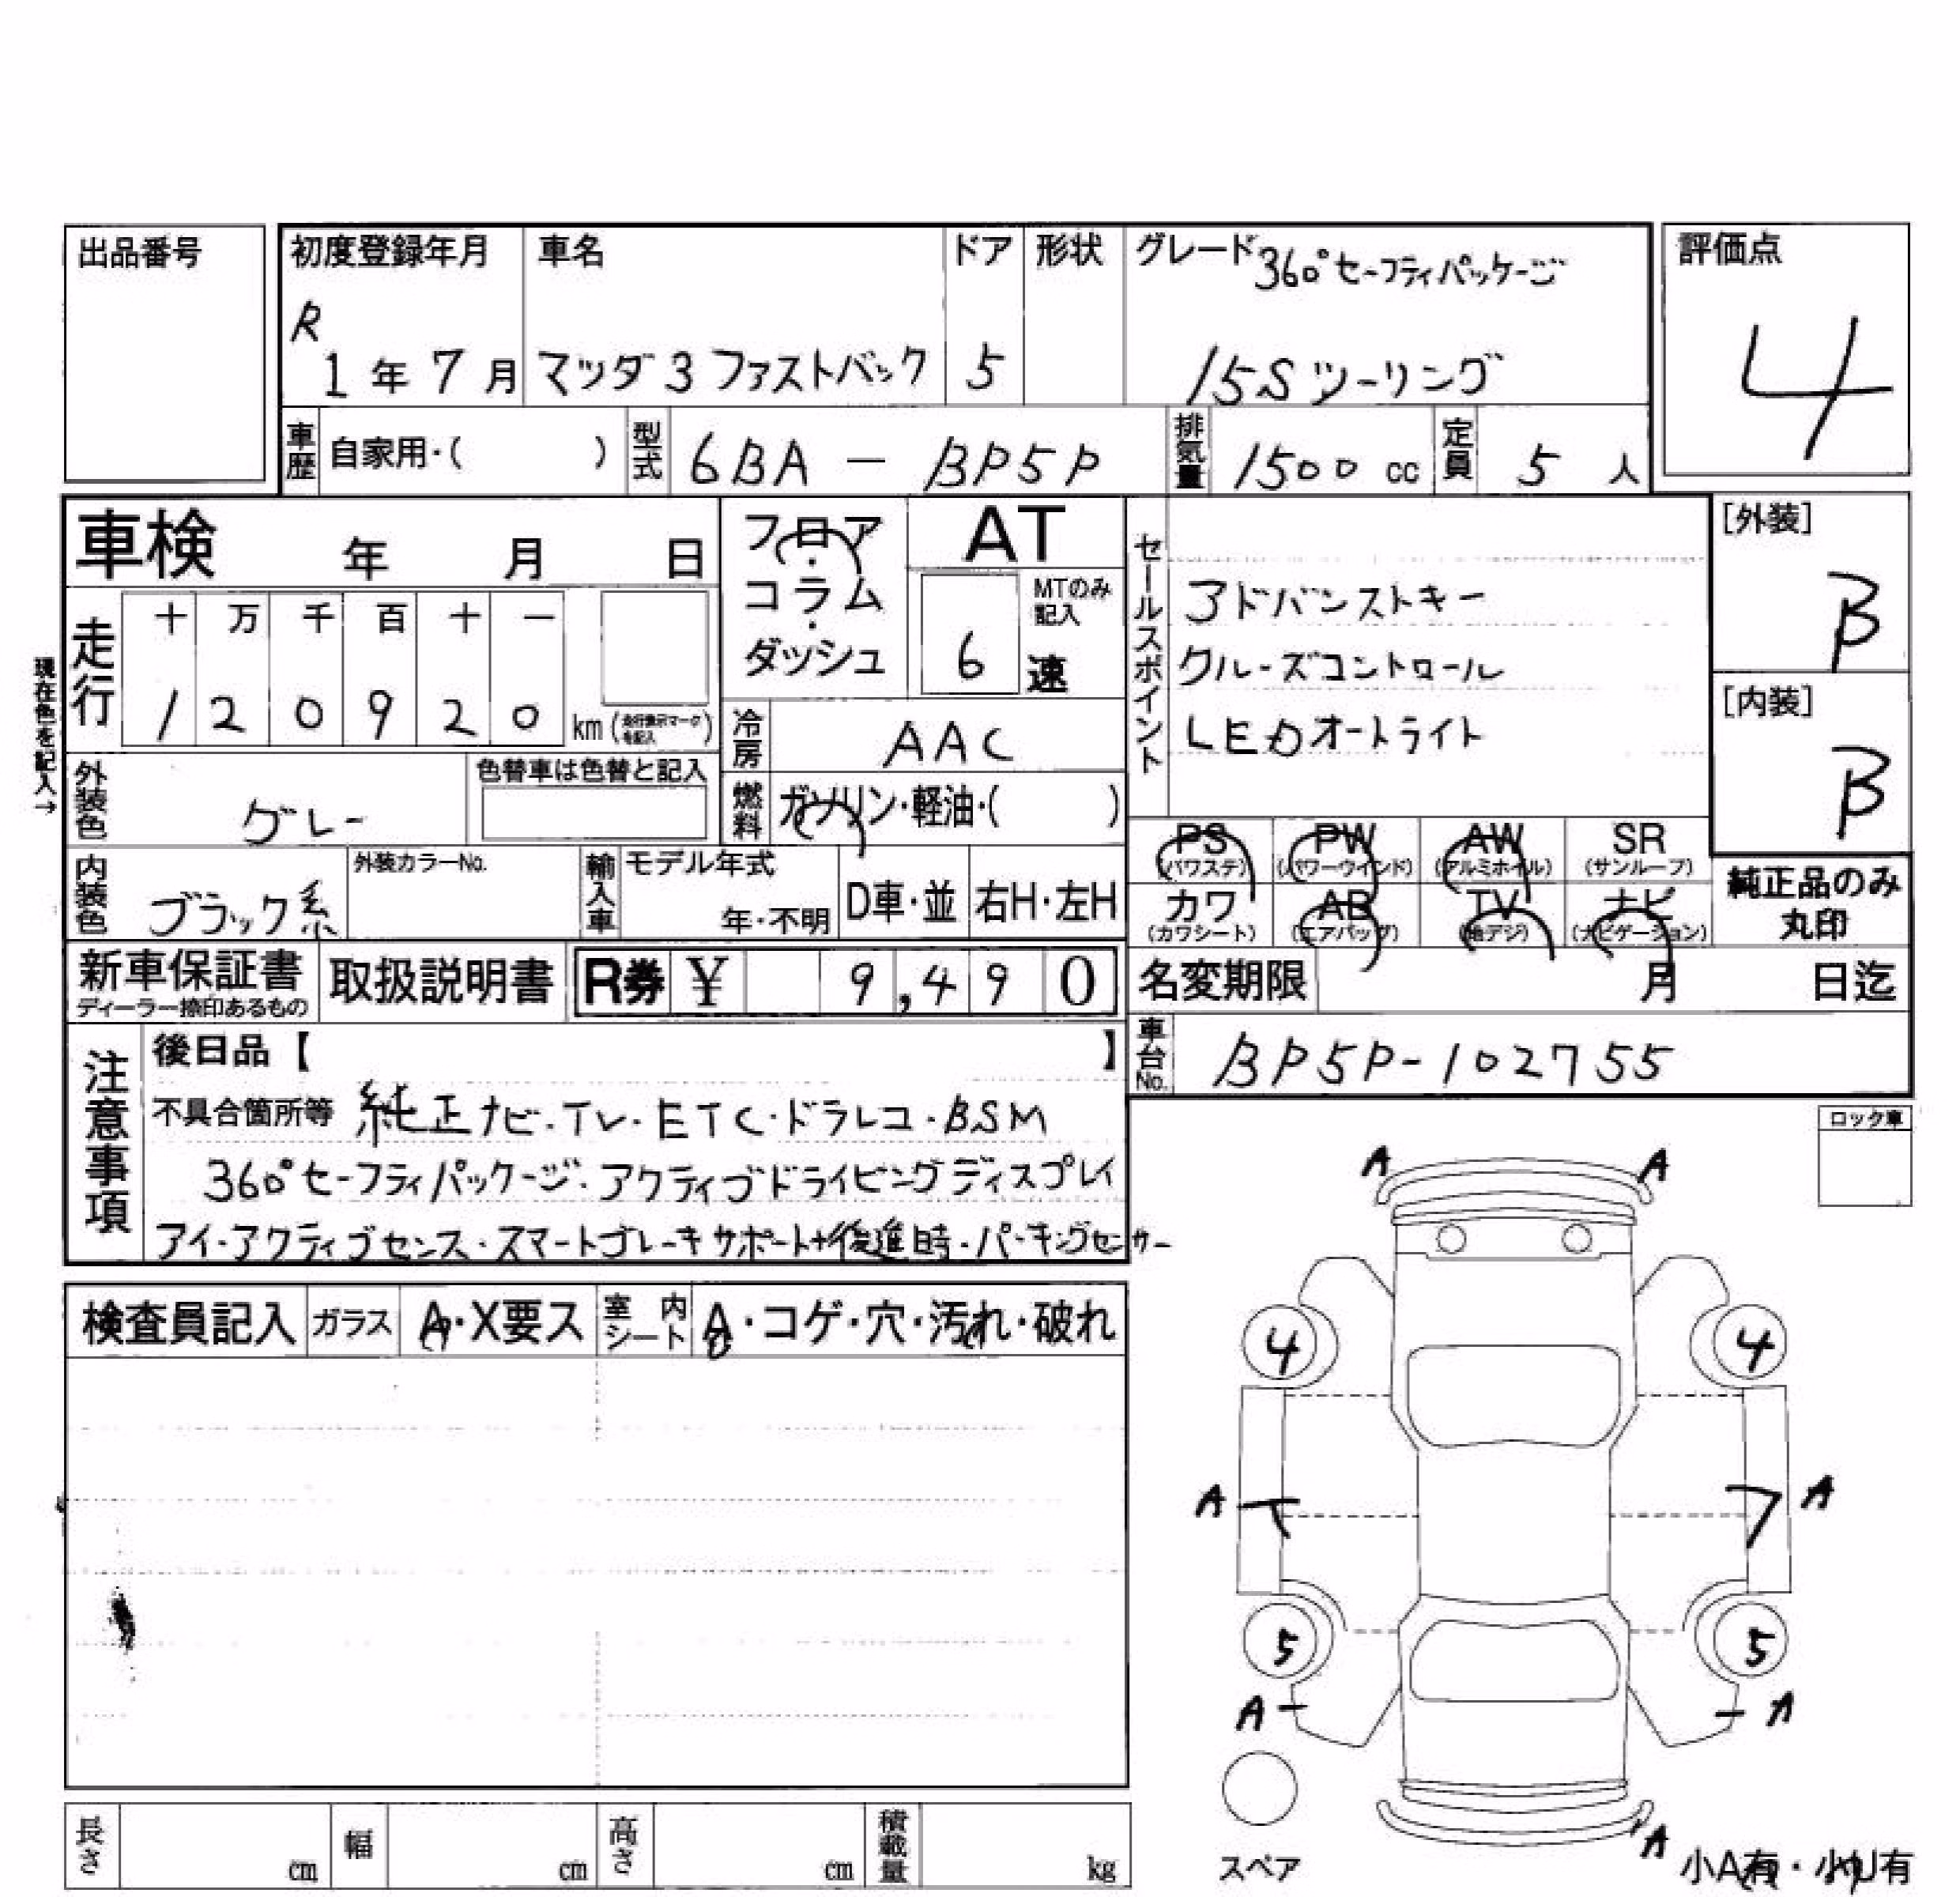 出品番号
初度登録年月 車名 ドア 形状 グレード 360°セーフティパッケージ 評価点
R
1年7月 マツダ3 ファストバック 5 15Sツーリング 4
車歴 自家用・( ) 型式 6BA — BP5P 排気量 1500 cc 定員 5 人
車検 年 月 日
フロア・コラム・ダッシュ
AT
MTのみ記入
6 速
セールスポイント
アドバンストキー
クルーズコントロール
LEDオートライト
[外装]
B
[内装]
B
現在色を記入→
走行 十 万 千 百 十 一
1 2 0 9 2 0 km (走行表示マークを記入)
冷房 AAC
外装色 グレー 色替車は色替と記入
燃料 ガソリン・軽油・( )
PS (パワステ) PW (パワーウィンド) AW (アルミホイル) SR (サンルーフ)
カワ (カワシート) AB (エアバッグ) TV (地デジ) ナビ (ナビゲーション)
純正品のみ
丸印
内装色 ブラック系 外装カラーNo. 輸入車 モデル年式 年・不明 D車・並 右H・左H
新車保証書 ディーラー捺印あるもの 取扱説明書 R券 ¥ 9,490 名変期限 月 日迄
車台No. BP5P-102755
注意事項
後日品【 】
不具合箇所等 純正ナビ・TV・ETC・ドラレコ・BSM
360°セーフティパッケージ・アクティブドライビングディスプレイ
アイ・アクティブセンス・スマートブレーキサポート+後進時・パーキングセンサー
ロック車
検査員記入 ガラス A・X要ス 室内シート A・コゲ・穴・汚れ・破れ
A A
4 4
A A
5 5
A A
スペア
A
小A有・小U有
長さ cm 幅 cm 高さ cm 積載量 kg